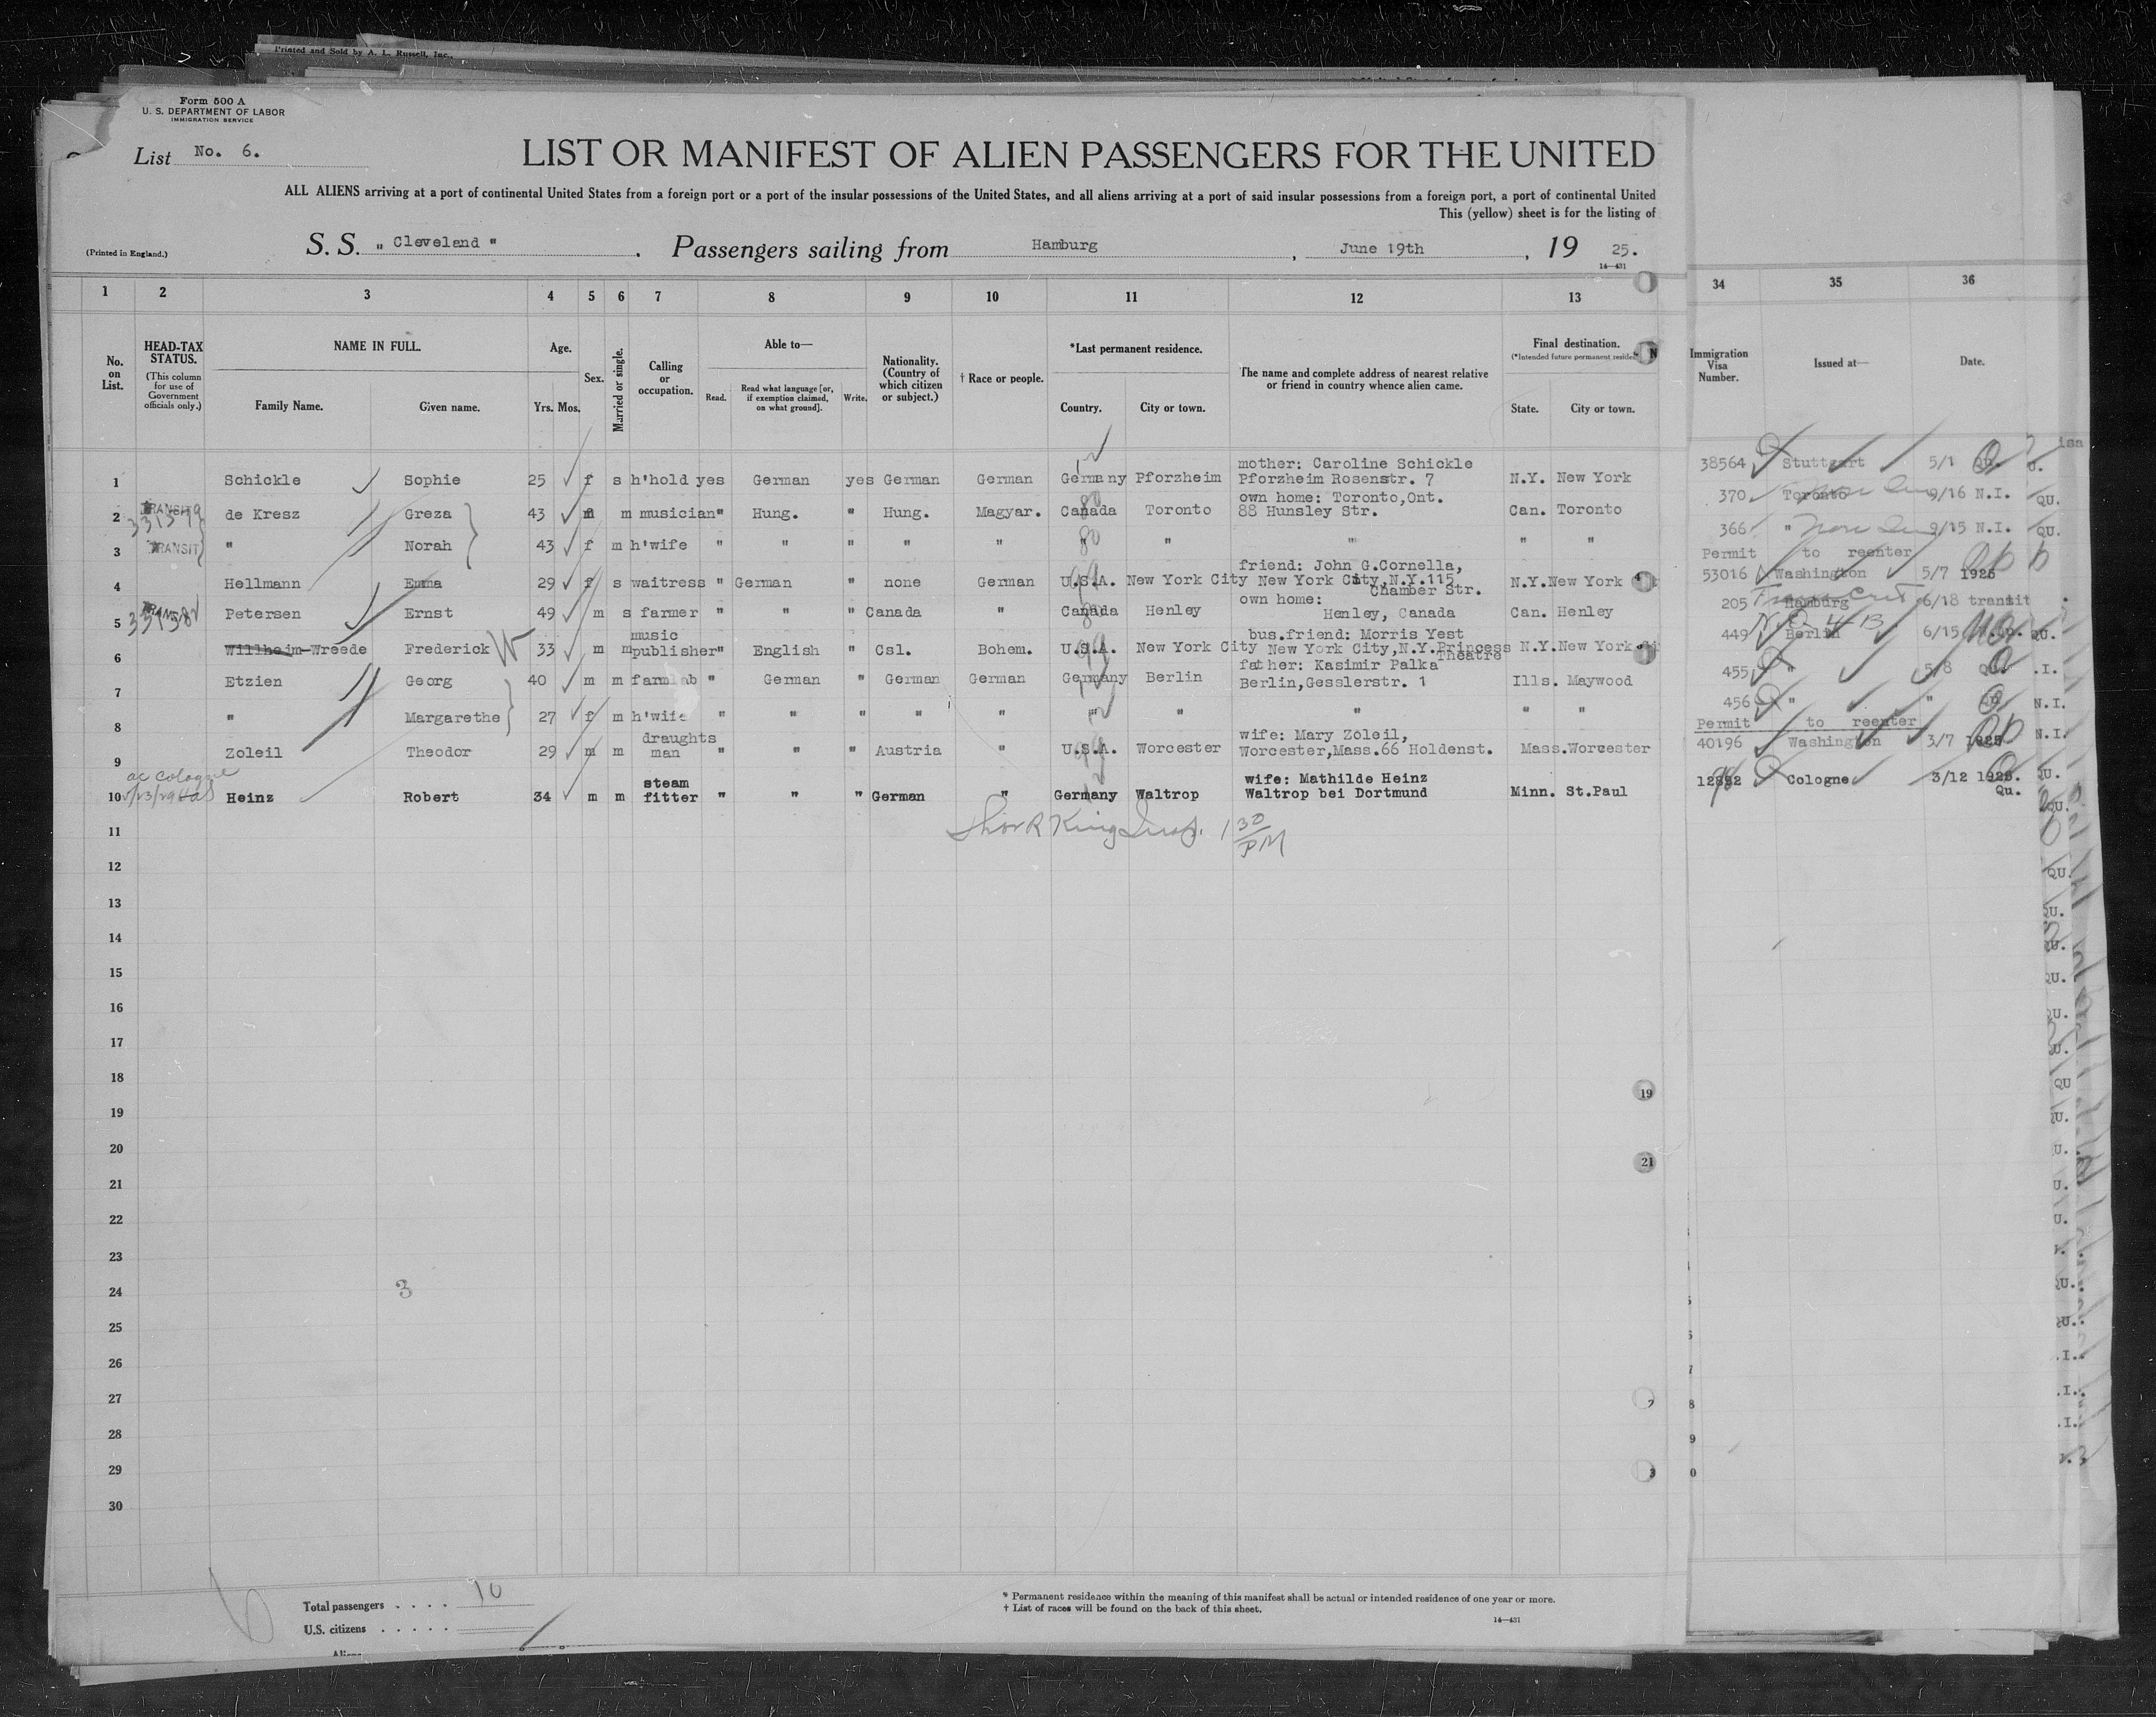 Printed and Sold by A. L. Russell, Inc.,
Form 500 A
U. S. DEPARTMENT OF LABOR
IMMIGRATION SERVICE
List No. 6.
LIST OR MANIFEST OF ALIEN PASSENGERS FOR THE UNITED
ALL ALIENS arriving at a port of continental United States from a foreign port or a port of the insular possessions of the United States, and all aliens arriving at a port of said insular possessions from a foreign port, a port of continental United
This (yellow) sheet is for the listing of
(Printed in England.)
S. S. „ Cleveland " . Passengers sailing from Hamburg , June 19th , 19 25.
14—431
1 2 3 4 5 6 7 8 9 10 11 12 13 34 35 36
No. on List.
HEAD-TAX STATUS.
(This column for use of Government officials only.)
NAME IN FULL.
Family Name. Given name.
Age.
Yrs. Mos.
Sex.
Married or single.
Calling or occupation.
Able to—
Read. Read what language [or, if exemption claimed, on what ground]. Write.
Nationality. (Country of which citizen or subject.)
† Race or people.
*Last permanent residence.
Country. City or town.
The name and complete address of nearest relative or friend in country whence alien came.
Final destination.
State. City or town.
Immigration Visa Number.
Issued at—
Date.
1 Schickle Sophie 25 f s h'hold yes German yes German German Germany Pforzheim mother: Caroline Schickle Pforzheim Rosenstr. 7 N.Y. New York 38564 Stuttgart 5/1 Qu.
2 TRANSIT de Kresz Greza 43 m m musician " Hung. " Hung. Magyar. Canada Toronto own home: Toronto,Ont. 88 Hunsley Str. Can. Toronto 370 Toronto 9/16 N.I. QU.
3 TRANSIT " Norah 43 f m h'wife " " " " " " " " " " 366 " 9/15 N.I. QU.
4 Hellmann Emma 29 f s waitress " German " none German U.S.A. New York City friend: John G.Cornella, New York City,N.Y.115 Chamber Str. N.Y. New York Permit to reenter 53016 Washington 5/7 1925
5 Petersen Ernst 49 m s farmer " " " Canada " Canada Henley own home: Henley, Canada Can. Henley 205 Hamburg 6/18 transit
6 Willheim-Wreede Frederick 33 m m music publisher " English " Csl. Bohem. U.S.A. New York City bus.friend: Morris Yest New York City,N.Y.Princess Theatre N.Y. New York 449 Berlin 6/15 QU.
7 Etzien Georg 40 m m farmlab " German " German German Germany Berlin father: Kasimir Palka Berlin,Gesslerstr. 1 Ills. Maywood 455 " 5/8 Qu. .I.
8 " Margarethe 27 f m h'wife " " " " " " " " " " 456 " " N.I.
9 Zoleil Theodor 29 m m draughts man " " " Austria " U.S.A. Worcester wife: Mary Zoleil, Worcester,Mass.66 Holdenst. Mass. Worcester Permit to reenter 40196 Washington 3/7 1925 N.I.
10 Heinz Robert 34 m m steam fitter " " " German " Germany Waltrop wife: Mathilde Heinz Waltrop bei Dortmund Minn. St.Paul 12882 Cologne 3/12 1925. Qu. QU.
11 1 30 PM
12
13
14
15
16
17
18
19
20
21
22
23
24
25
26
27
28
29
30
3
19
21
Total passengers . . . . 10
U.S. citizens . . . . .
* Permanent residence within the meaning of this manifest shall be actual or intended residence of one year or more.
† List of races will be found on the back of this sheet.
14—431